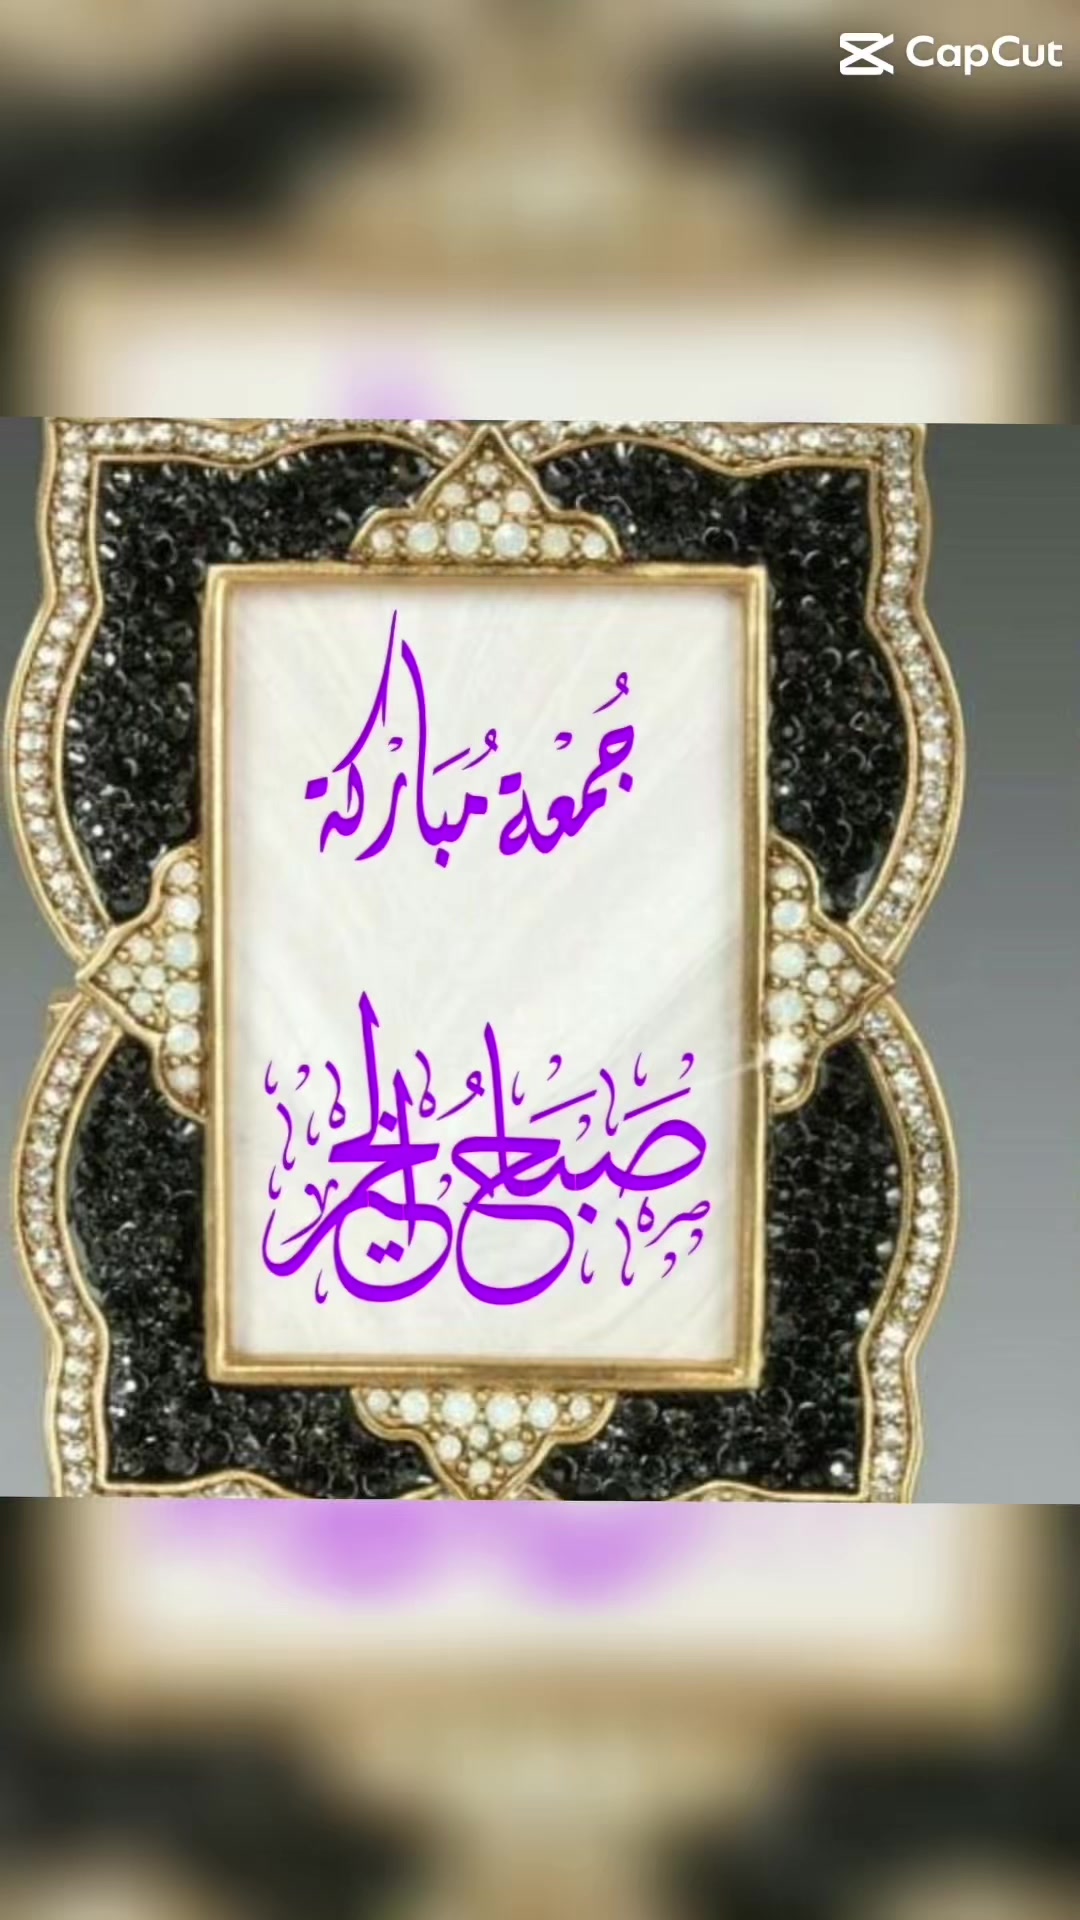 CapCut
جُمْعة مُبَارْكة
صَبَاحُ الخير